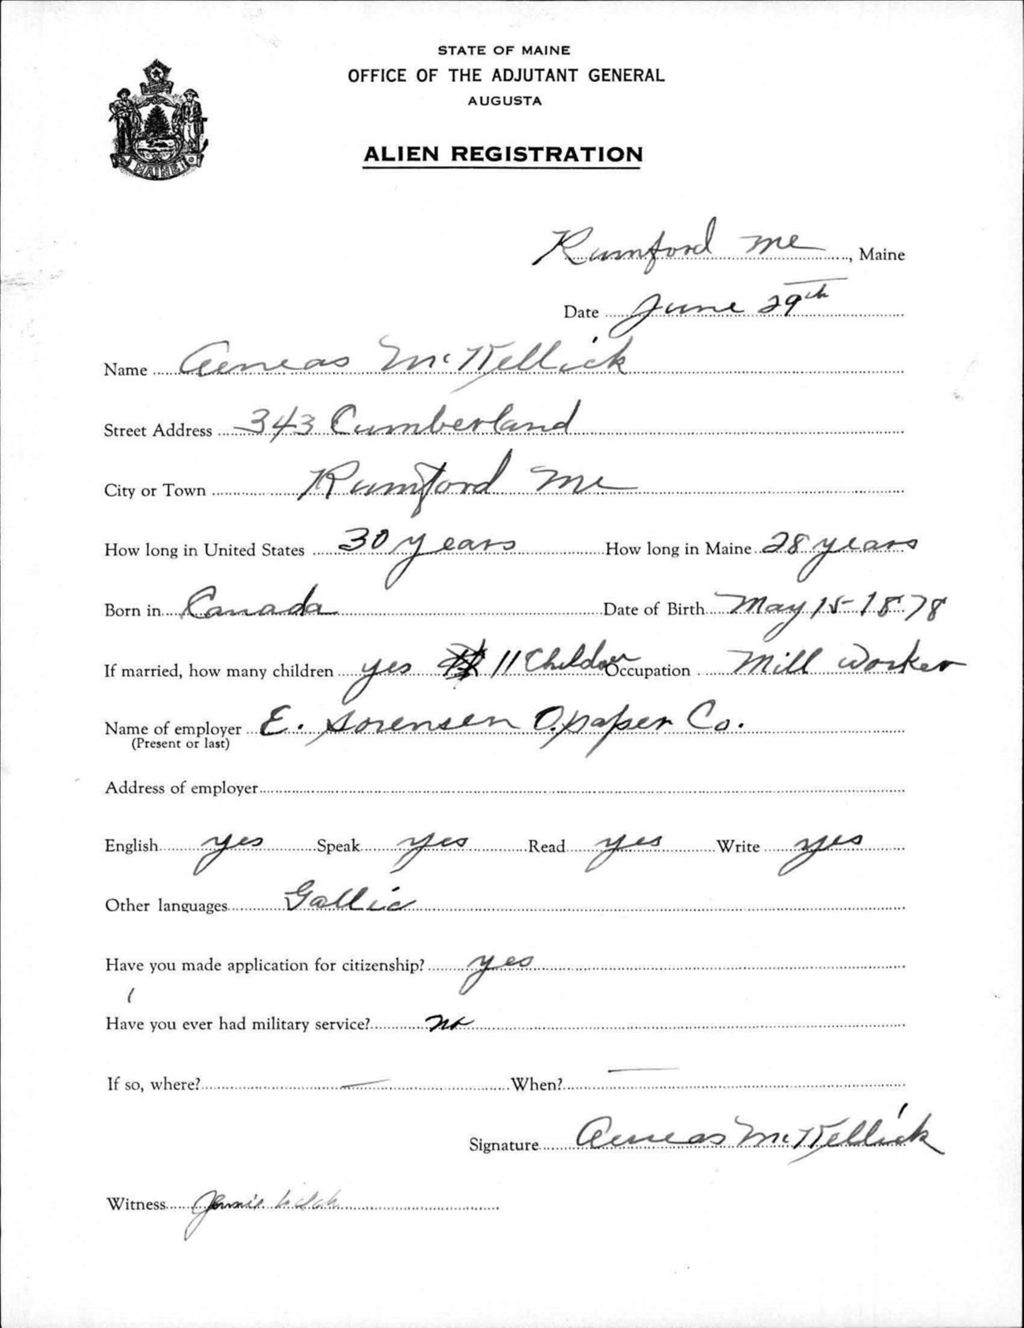 STATE OF MAINE
OFFICE OF THE ADJUTANT GENERAL
AUGUSTA
ALIEN REGISTRATION
MAINE
Rumford Me, Maine
Date June 29th
Name Aeneas McKellick
Street Address 343 Cumberland
City or Town Rumford Me
How long in United States 30 years How long in Maine 28 years
Born in Canada Date of Birth May 15-1878
If married, how many children yes 11 Children Occupation Mill Worker
Name of employer E. Sorensen O. paper Co.
(Present or last)
Address of employer
English yes Speak yes Read yes Write yes
Other languages Gallic
Have you made application for citizenship? yes
Have you ever had military service? no
If so, where? — When? —
Signature Aeneas McKellick
Witness Jennie